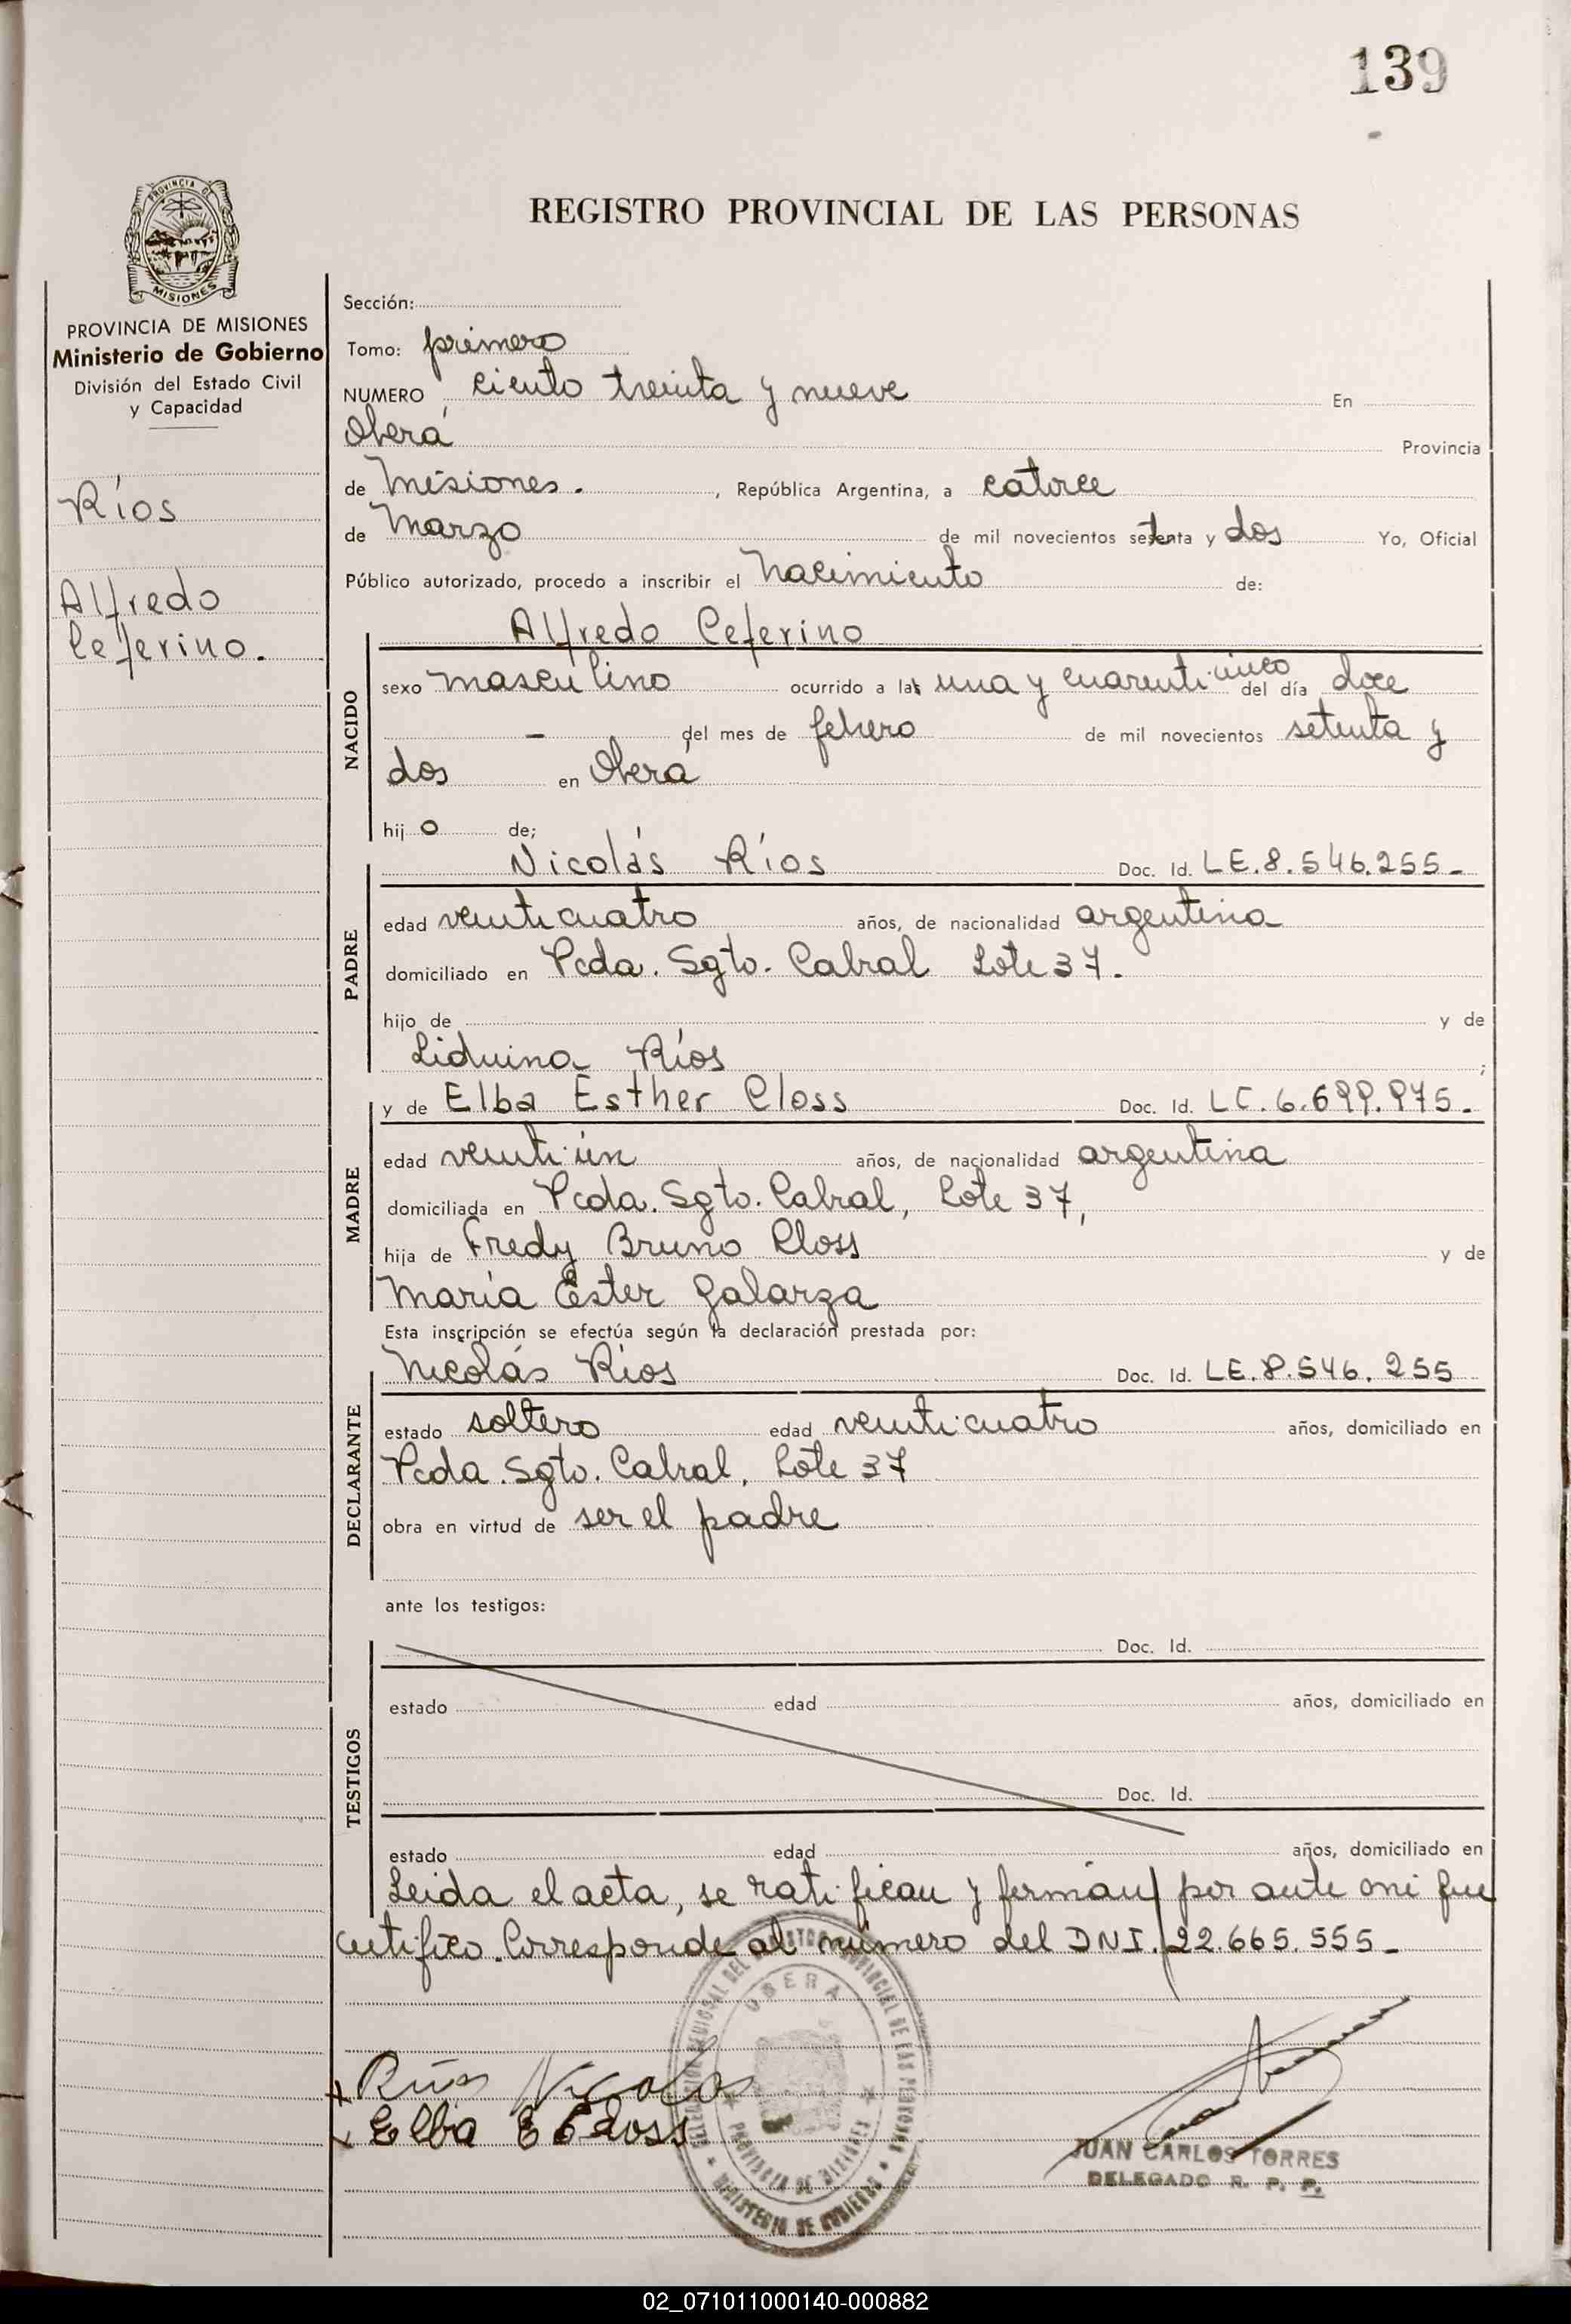 139
REGISTRO PROVINCIAL DE LAS PERSONAS
PROVINCIA DE MISIONES
Ministerio de Gobierno
División del Estado Civil
y Capacidad
Ríos
Alfredo
Ceferino.
Sección:
Tomo: primero
NUMERO ciento treinta y nueve En
Oberá Provincia
de Misiones. , República Argentina, a catorce
de Marzo de mil novecientos setenta y dos Yo, Oficial
Público autorizado, procedo a inscribir el Nacimiento de:
Alfredo Ceferino
NACIDO
sexo masculino ocurrido a las una y cuarenticinco del día doce
- del mes de febrero de mil novecientos setenta y
dos en Oberá
hijo de;
Nicolás Ríos Doc. Id. LE.8.546.255-
PADRE
edad veinticuatro años, de nacionalidad argentina
domiciliado en Pcda. Sgto. Cabral Lote 37.
hijo de y de
Liduina Ríos ;
y de Elba Esther Closs Doc. Id. LC.6.699.975.
MADRE
edad veintiún años, de nacionalidad argentina
domiciliada en Pcda. Sgto. Cabral, Lote 37,
hija de Fredy Bruno Closs y de
María Ester Galarza
Esta inscripción se efectúa según la declaración prestada por:
Nicolás Ríos Doc. Id. LE.8.546.255
DECLARANTE
estado soltero edad veinticuatro años, domiciliado en
Pcda. Sgto. Cabral, Lote 37
obra en virtud de ser el padre
ante los testigos:
TESTIGOS
Doc. Id.
estado edad años, domiciliado en
Doc. Id.
estado edad años, domiciliado en
Leida el acta, se ratifican y firman por ante mi que
certifico. Corresponde al número del DNI. 22.665.555-
Ríos Nicolas
Elba E Closs
OBERA
PROVINCIA DE MISIONES
MINISTERIO DE GOBIERNO
JUAN CARLOS TORRES
DELEGADO R. P. P.
02_071011000140-000882